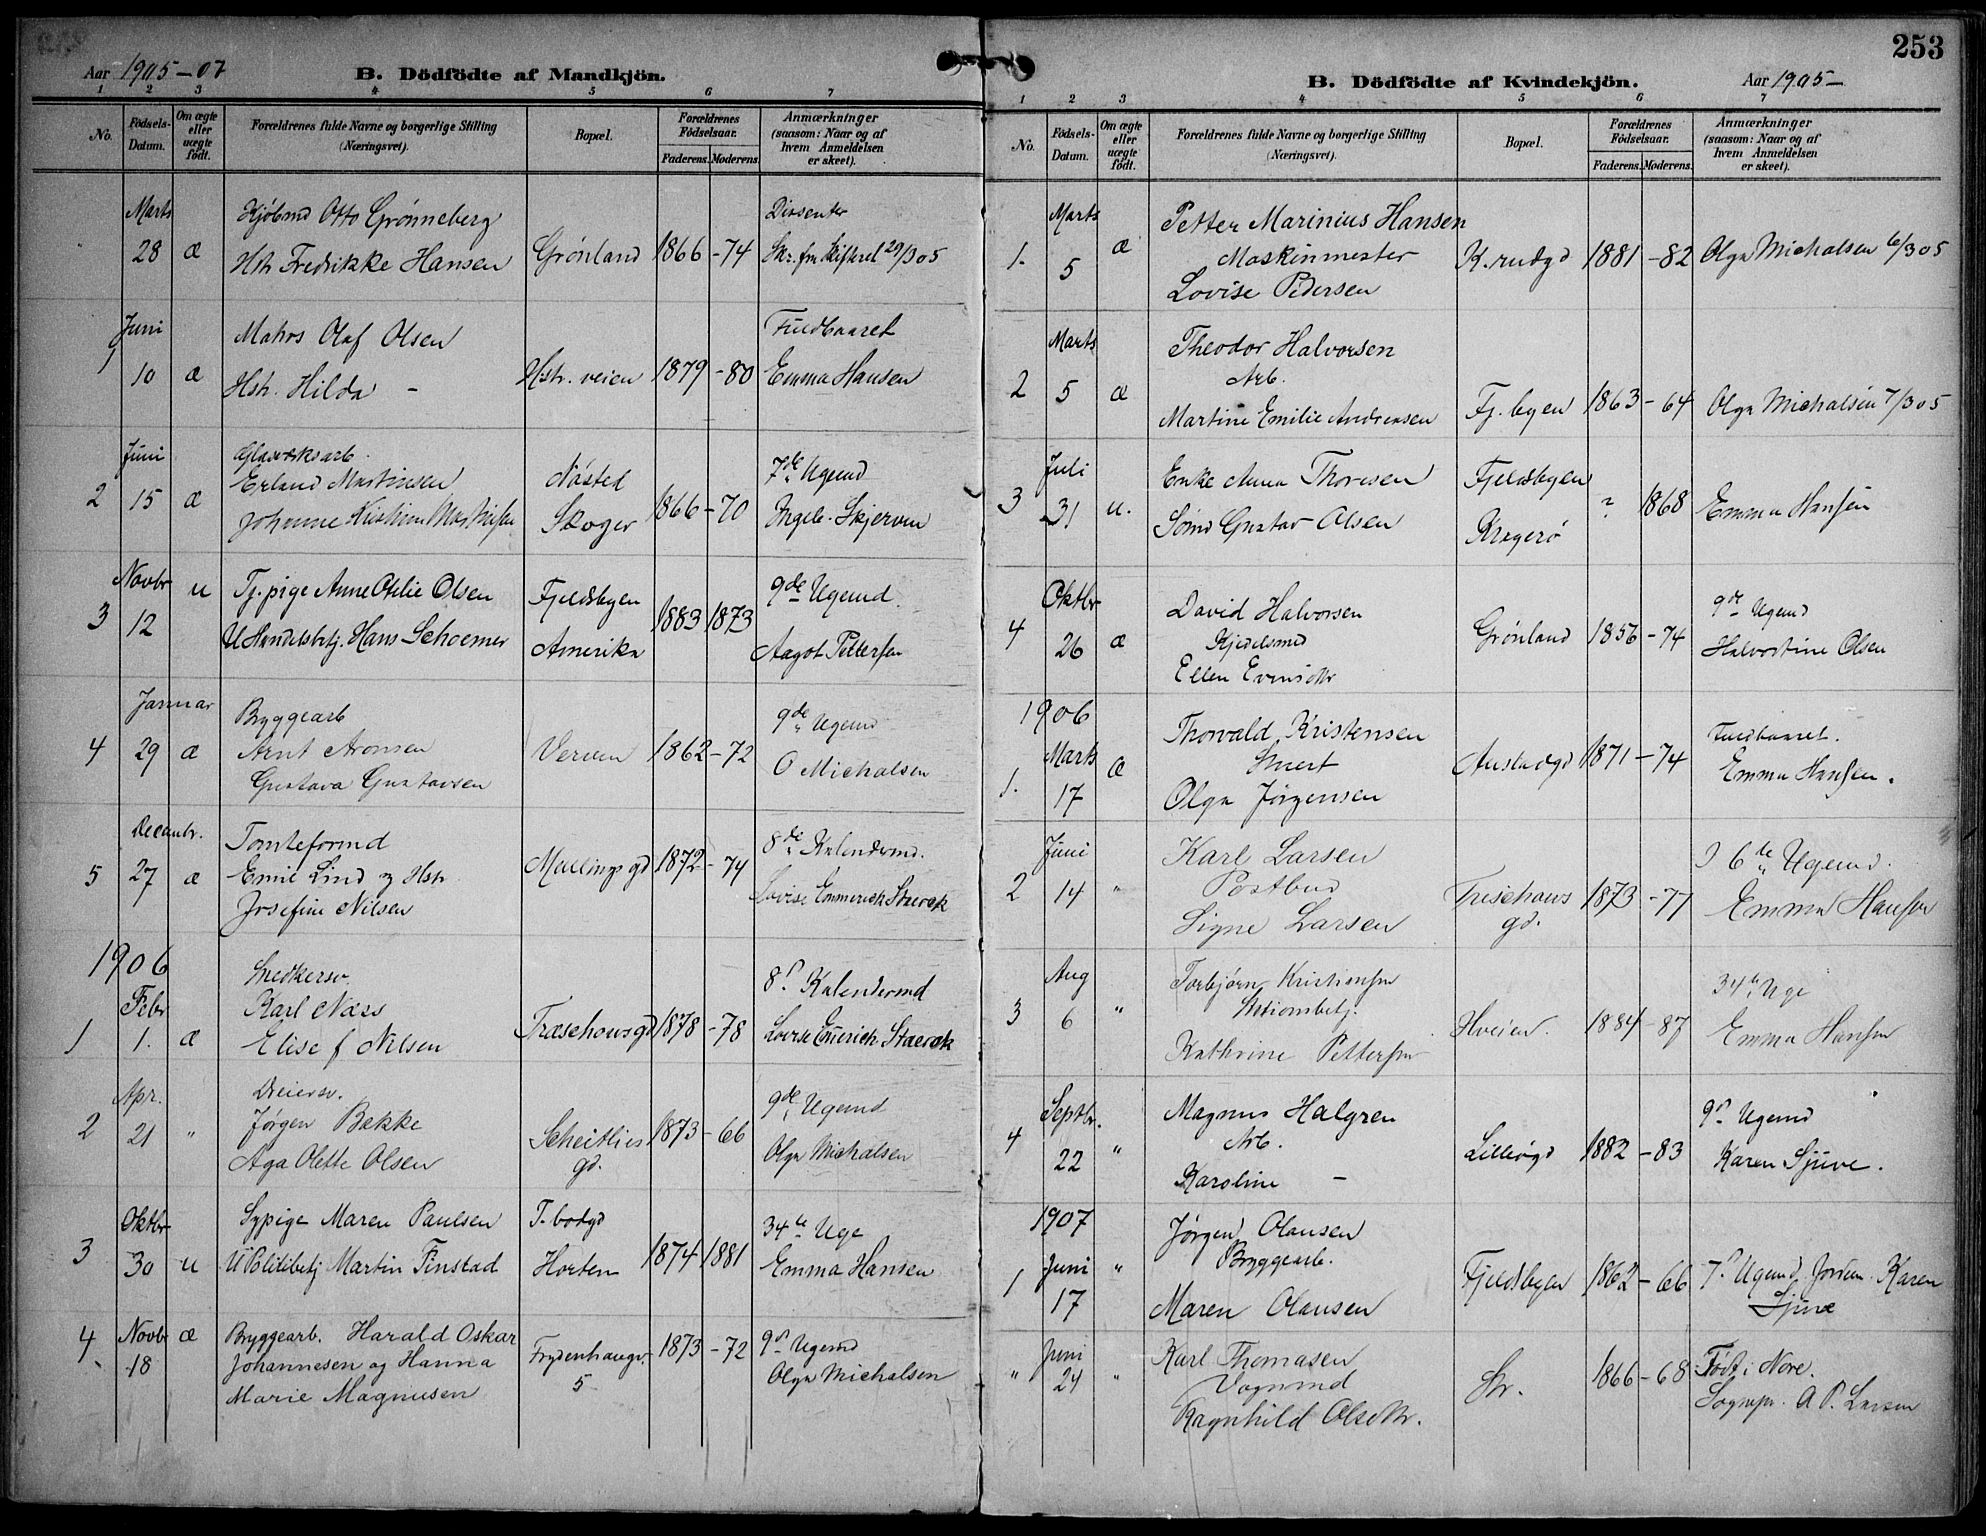 Aar 1905-07
B. Dödfödte af Mandkjön.
1 2 3 4 5 6 7
No. Födsels-Datum. Om ægte eller uægte födt. Forældrenes fulde Navne og borgerlige Stilling (Næringsvei). Bopæl. Forældrenes Födselsaar. Faderens. Moderens. Anmærkninger (saasom: Naar og af hvem Anmeldelsen er skeet).
Marts Kjøbmd Otto Grønneberg Dissenter
28 æ Hstr Fredrikke Hansen Grønland 1866 -74 Skr. fra Skifteret 29/3 05
Juni Matros Olaf Olsen Fuldbaaret
1 10 æ Hstr. Hilda - Hstr. veien 1879 -80 Emma Hansen
Juni Glasværksarb.
Erland Martinsen Nøsted 7de Ugemd
2 15 æ Johanne Kristine Martinsen Skoger 1866 -70 Ingeb. Skjerven
Novbr u Tj.pige Anne Otilie Olsen Fjeldbyen 9de Ugemd.
3 12 U Handelsbetj. Hans Schoemer Amerika 1883 1873 Aagot Pettersen
Januar Bryggearb 9de Ugemd
4 29 æ Arnt Aronsen Verven 1862 -72 O Michalsen
Gustava Gustavsen
Decembr. Tomteformd 8de Kalendermd.
5 27 æ Emil Lind og Hstr. Mællings gd 1872 -74 Lovise Emmerich Staerck
Josefine Nilsen
1906 Snedkersv. 8d Kalendermd
Febr Karl Næss
1 1. æ Elise f Nilsen Træschowsgd 1878 -78 Lovise Emerich Staerck
Apr. Dreiersv. 9de Ugemd
2 21 " Jørgen Bakke Scheitlies gd. 1873 -66 Olga Michalsen
Aga Olette Olsen
Oktbr Sypige Maren Paulsen T. bodgd 34te Uge
3 30 u U Politibetj Martin Finstad Horten 1874 1881 Emma Hansen
4 Novbr æ Bryggearb. Harald Oskar Frydenhaugv. 1873 -72 9d Ugemd
18 Johannesen og Hanna 5 Olga Michalsen
Marie Magnusen
253
B. Dödfödte af Kvindekjön.
Aar 1905-
1 2 3 4 5 6 7
No. Födsels-Datum. Om ægte eller uægte födt. Forældrenes fulde Navne og borgerlige Stilling (Næringsvei). Bopæl. Forældrenes Födselsaar. Faderens. Moderens. Anmærkninger (saasom: Naar og af hvem Anmeldelsen er skeet).
Marts Petter Marinius Hansen
1. 5 æ Maskinmester K.rudgd 1881 -82 Olga Michalsen 6/3 05
Lovise Pedersen
Marts Theodor Halvorsen
2 5 æ Arb. Fj. byen 1863 -64 Olga Michalsen 7/3 05
Martine Emilie Andreasen
Juli Enke Anna Thoresen Fjeldbyen
3 31 u. Sømd Gustav Olsen Kragerø ? 1868 Emma Hansen
Oktbr David Halvorsen 9de Ugemd
4 26 æ Kjedelsmed Grønland 1856 -74 Halvortine Olsen
Ellen Evensdtr
1906 Thorvald Kristensen Fuldbaaret.
Marts æ Austadgd 1871 -74 Emma Hansen.
1. 17 Olga Jørgensen
Juni Karl Larsen I 6te Ugemd.
2 14 " Postbud Treschows gd. 1873 -77 Emma Hansen
Signe Larsen
Aug Torbjørn Kristiansen 34te Uge
3 6 " Stationsbetj. Hveien. 1884 -87 Emma Hansen
Kathrine Pettersen
Septbr. Magnus Halgren 9d Ugemd
4 22 " Arb. Lilleøgd 1882 -83 Karen Sjuve.
Karoline -
1907 Jørgen Olausen
1 Juni " Bryggearb. Fjeldbyen 1862 -66 7d Ugemd Jordm. Karen
17 Maren Olausen Sjuve
Juni Karl Thomasen 1866 -68 Født i Nore.
" 24 " Vognmd Str. Sognepr. A P. Larsen
Ragnhild Olsdtr.